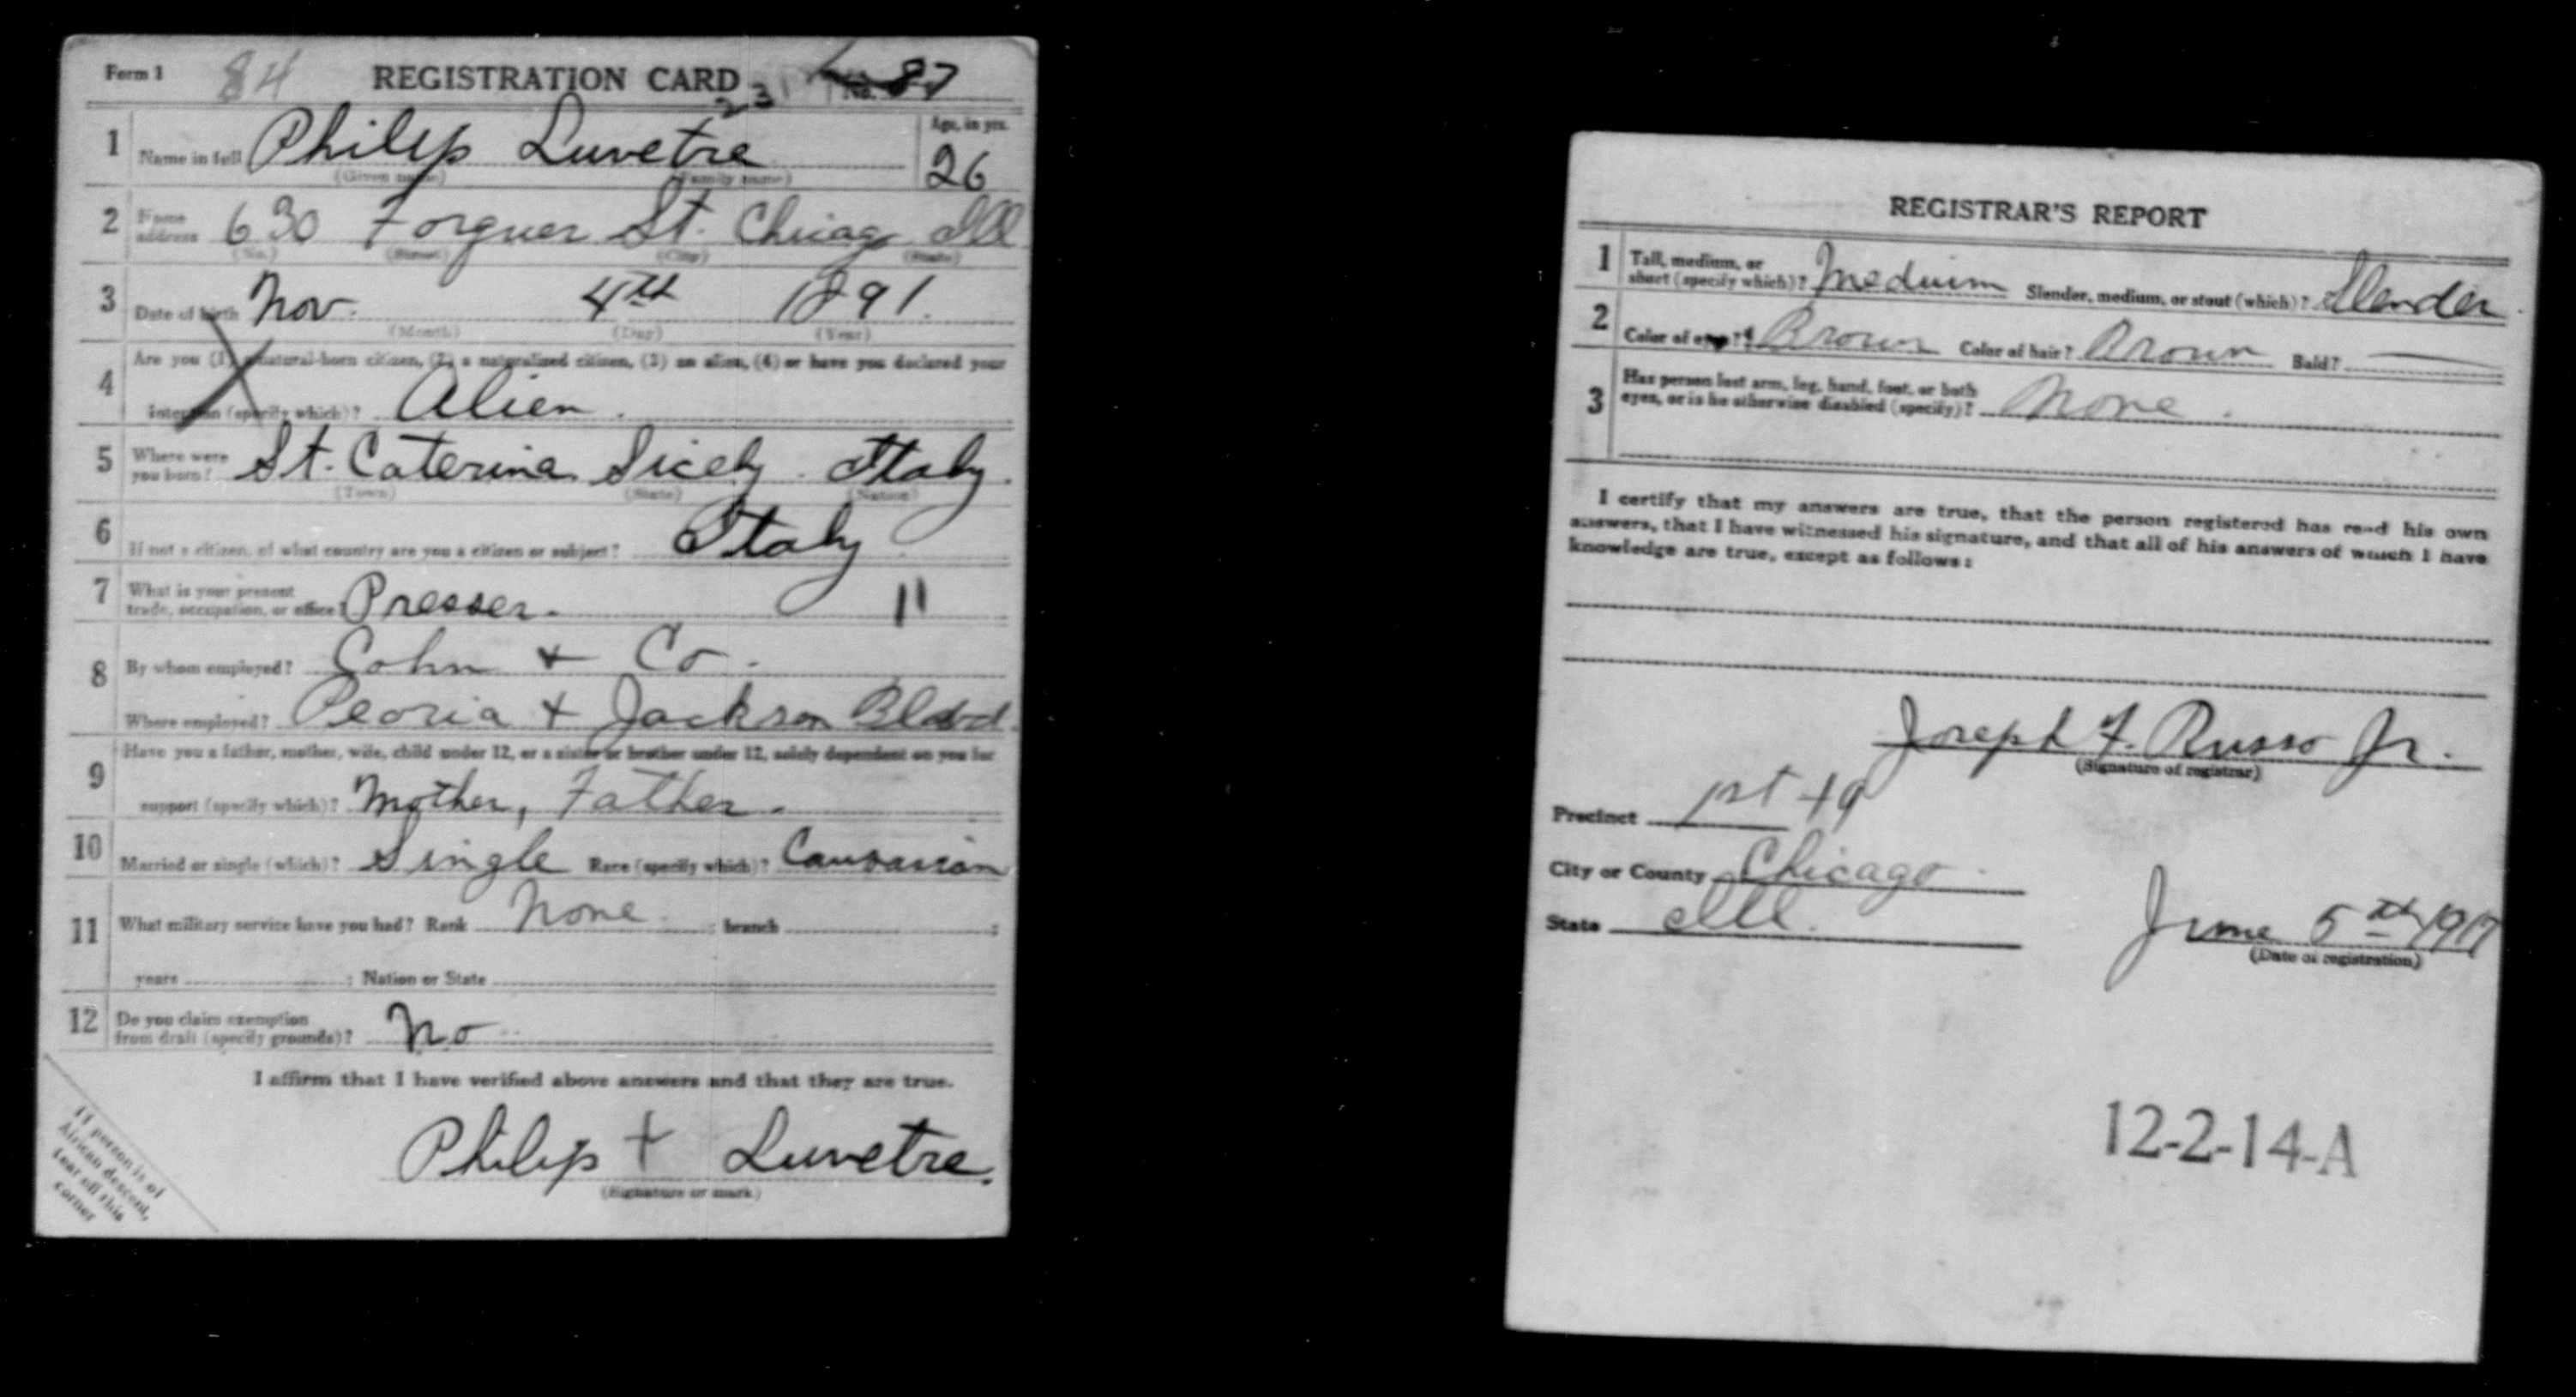 Form 1 84 REGISTRATION CARD 231 No. 87
1 Name in full Philip Luvetre Age, in yrs. 26
(Given name) (Family name)
2 Home address 630 Forquer St. Chicago Ill
(No.) (Street) (City) (State)
3 Date of birth Nov. 4th 1891.
(Month) (Day) (Year)
4 Are you (1) a natural-born citizen, (2) a naturalized citizen, (3) an alien, (4) or have you declared your
intention (specify which)? Alien.
5 Where were you born? St. Caterina Sicely Italy.
(Town) (State) (Nation)
6 If not a citizen, of what country are you a citizen or subject? Italy
7 What is your present trade, occupation, or office? Presser. 11
8 By whom employed? Cohn + Co.
Where employed? Peoria + Jackson Blvd
9 Have you a father, mother, wife, child under 12, or a sister or brother under 12, solely dependent on you for
support (specify which)? Mother, Father.
10 Married or single (which)? Single Race (specify which)? Caucasian
11 What military service have you had? Rank None. ; branch ;
years ; Nation or State
12 Do you claim exemption from draft (specify grounds)? No
I affirm that I have verified above answers and that they are true.
Philip + Luvetre.
(Signature or mark)
If person is of
African descent,
tear off this
corner
REGISTRAR'S REPORT
1 Tall, medium, or short (specify which)? Medium Slender, medium, or stout (which)? Slender
2 Color of eyes? Brown Color of hair? Brown Bald? —
3 Has person lost arm, leg, hand, foot, or both eyes, or is he otherwise disabled (specify)? None.
I certify that my answers are true, that the person registered has read his own
answers, that I have witnessed his signature, and that all of his answers of which I have
knowledge are true, except as follows:
Joseph F. Russo Jr.
(Signature of registrar)
Precinct 1st 19
City or County Chicago
State Ill.
June 5th 1917
(Date of registration)
12-2-14-A